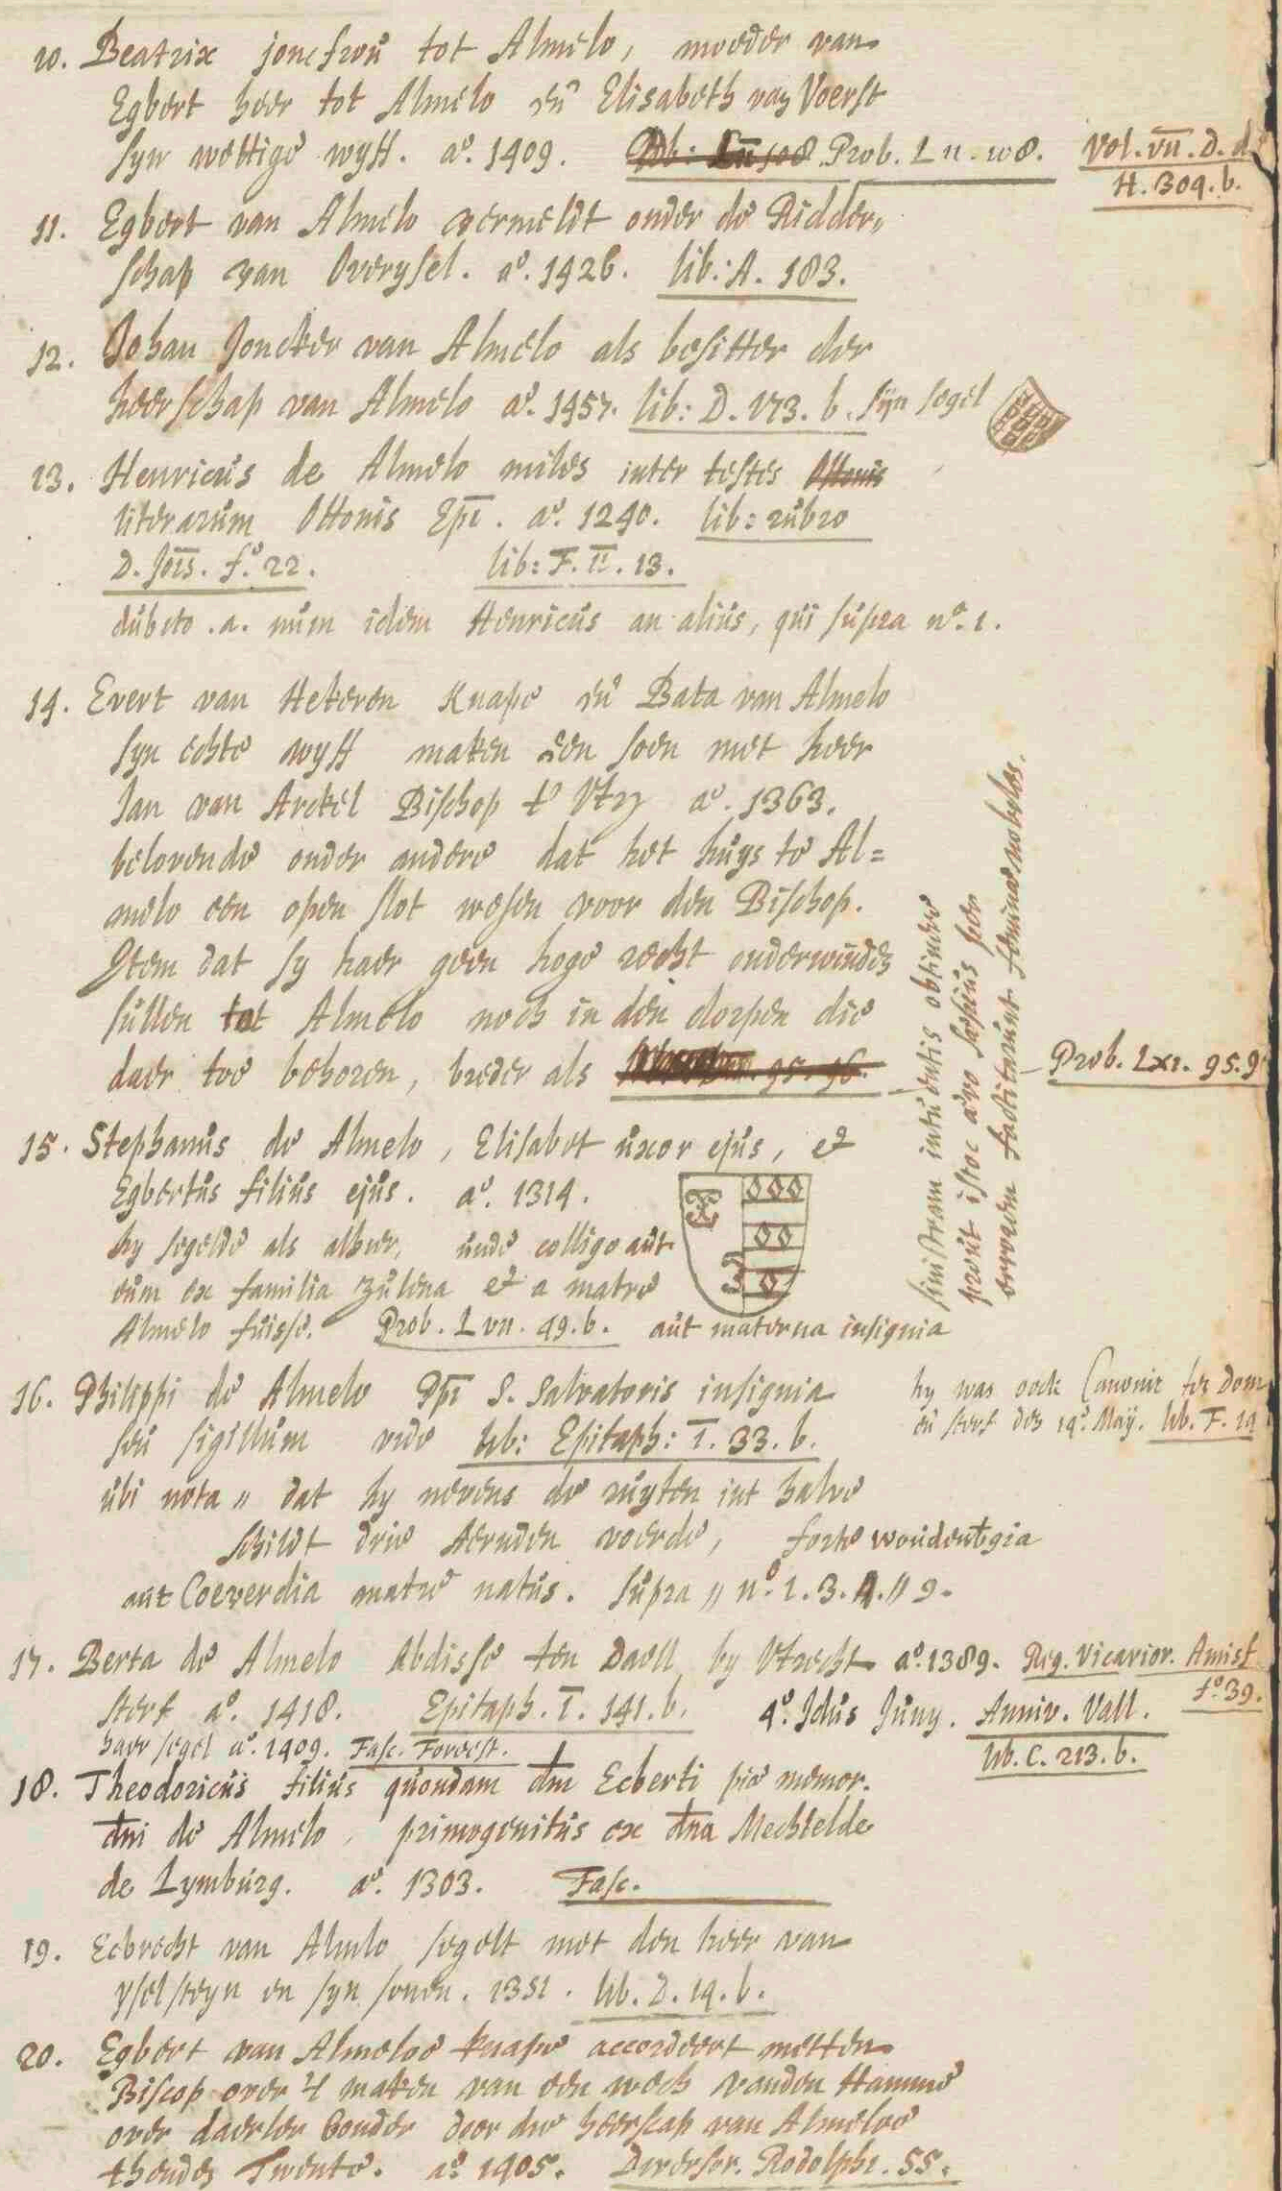 10. Beatrix joncfrou tot Almelo, moeder van
Egbert heer tot Almelo eñ Elisabeth van Voerst
syn wettige wyff. aº. 1409. Prob. L II. 108. Vol. VII. D. d.
H. 309. b.
11. Egbert van Almelo vermeldt onder de Ridder,,
schap van Overysel. aº. 1426. lib: A. 183.
12. Johan Joncker van Almelo als besitter der
heerschap van Almelo aº. 1457. lib: D. 173. b. syn segel
13. Henricus de Almelo miles inter testes Ottonis
literarum Ottonis Epi. aº. 1240. lib: rubro
D. Jois. fº. 22. lib: F. II. 13.
dubito .a. num idem Henricus an alius, qui supra nº. 1.
14. Evert van Hekeren Knape eñ Bata van Almelo
syn echte wyff maken een soen met heer
Jan van Arckel Bischop t' Utr aº. 1363.
belovende onder andere dat het huys to Al=
melo een open slot wesen voor den Bischop.
Item dat sy haer geen hoge recht onderwinden
sullen tot Almelo noch in den dorpen die
daer toe behoren, breder als 95. 96. Prob. LXI. 95. 9
15. Stephanus de Almelo, Elisabet uxor ejus, et
Egbertus filius ejus. aº. 1314.
hy segelde als alhier, unde colligo aut
eum ex familia Zulena et a matre
Almelo fuisse. Prob. L VII. 49. b. aut materna insignia
sinistram intuentis obtinere
prout istoc aevo saepius per
errorem factitarunt feminae nobiles.
16. Philippi de Almelo Ppi S. Salvatoris insignia
seu sigillum vide lib: Epitaph: I. 33. b.
hy was oock Canonic ten dom
eñ sterf den 19º. Maÿ. lib. F. 19
ubi nota ,, dat hy nevens de ruyten int halve
schildt drie Aernden voerde, forte woudenbgia
aut Coeverdia matre natus. supra ,, nº. 1. 3. 4. ,, 9.
17. Berta de Almelo Abdisse ten Daell by Utrecht aº. 1389. Reg. Vicarior. Amisf
fº. 39.
sterf aº. 1418. Epitaph. I. 141. b. 4º. Idus Juny. Anniv. Vall.
haer segel aº. 1409. Fasc. Foreest. lib. C. 213. b.
18. Theodoricus filius quondam dni Ecberti pie memor.
dni de Almelo, primogenitus ex dna Mechtelde
de Lymburg. aº. 1303. Fasc.
19. Ecbrecht van Almelo segelt met den heer van
Yselsteyn en syn sonen. 1351. lib. D. 19. b.
20. Egbert van Almeloe knape accordeert metten
Biscop over 't maken van een wech vanden Hamme
over daerler Conder door die heerscap van Almeloe
thenden Twente. aº 1405. Diversor. Rodolphi. 55.